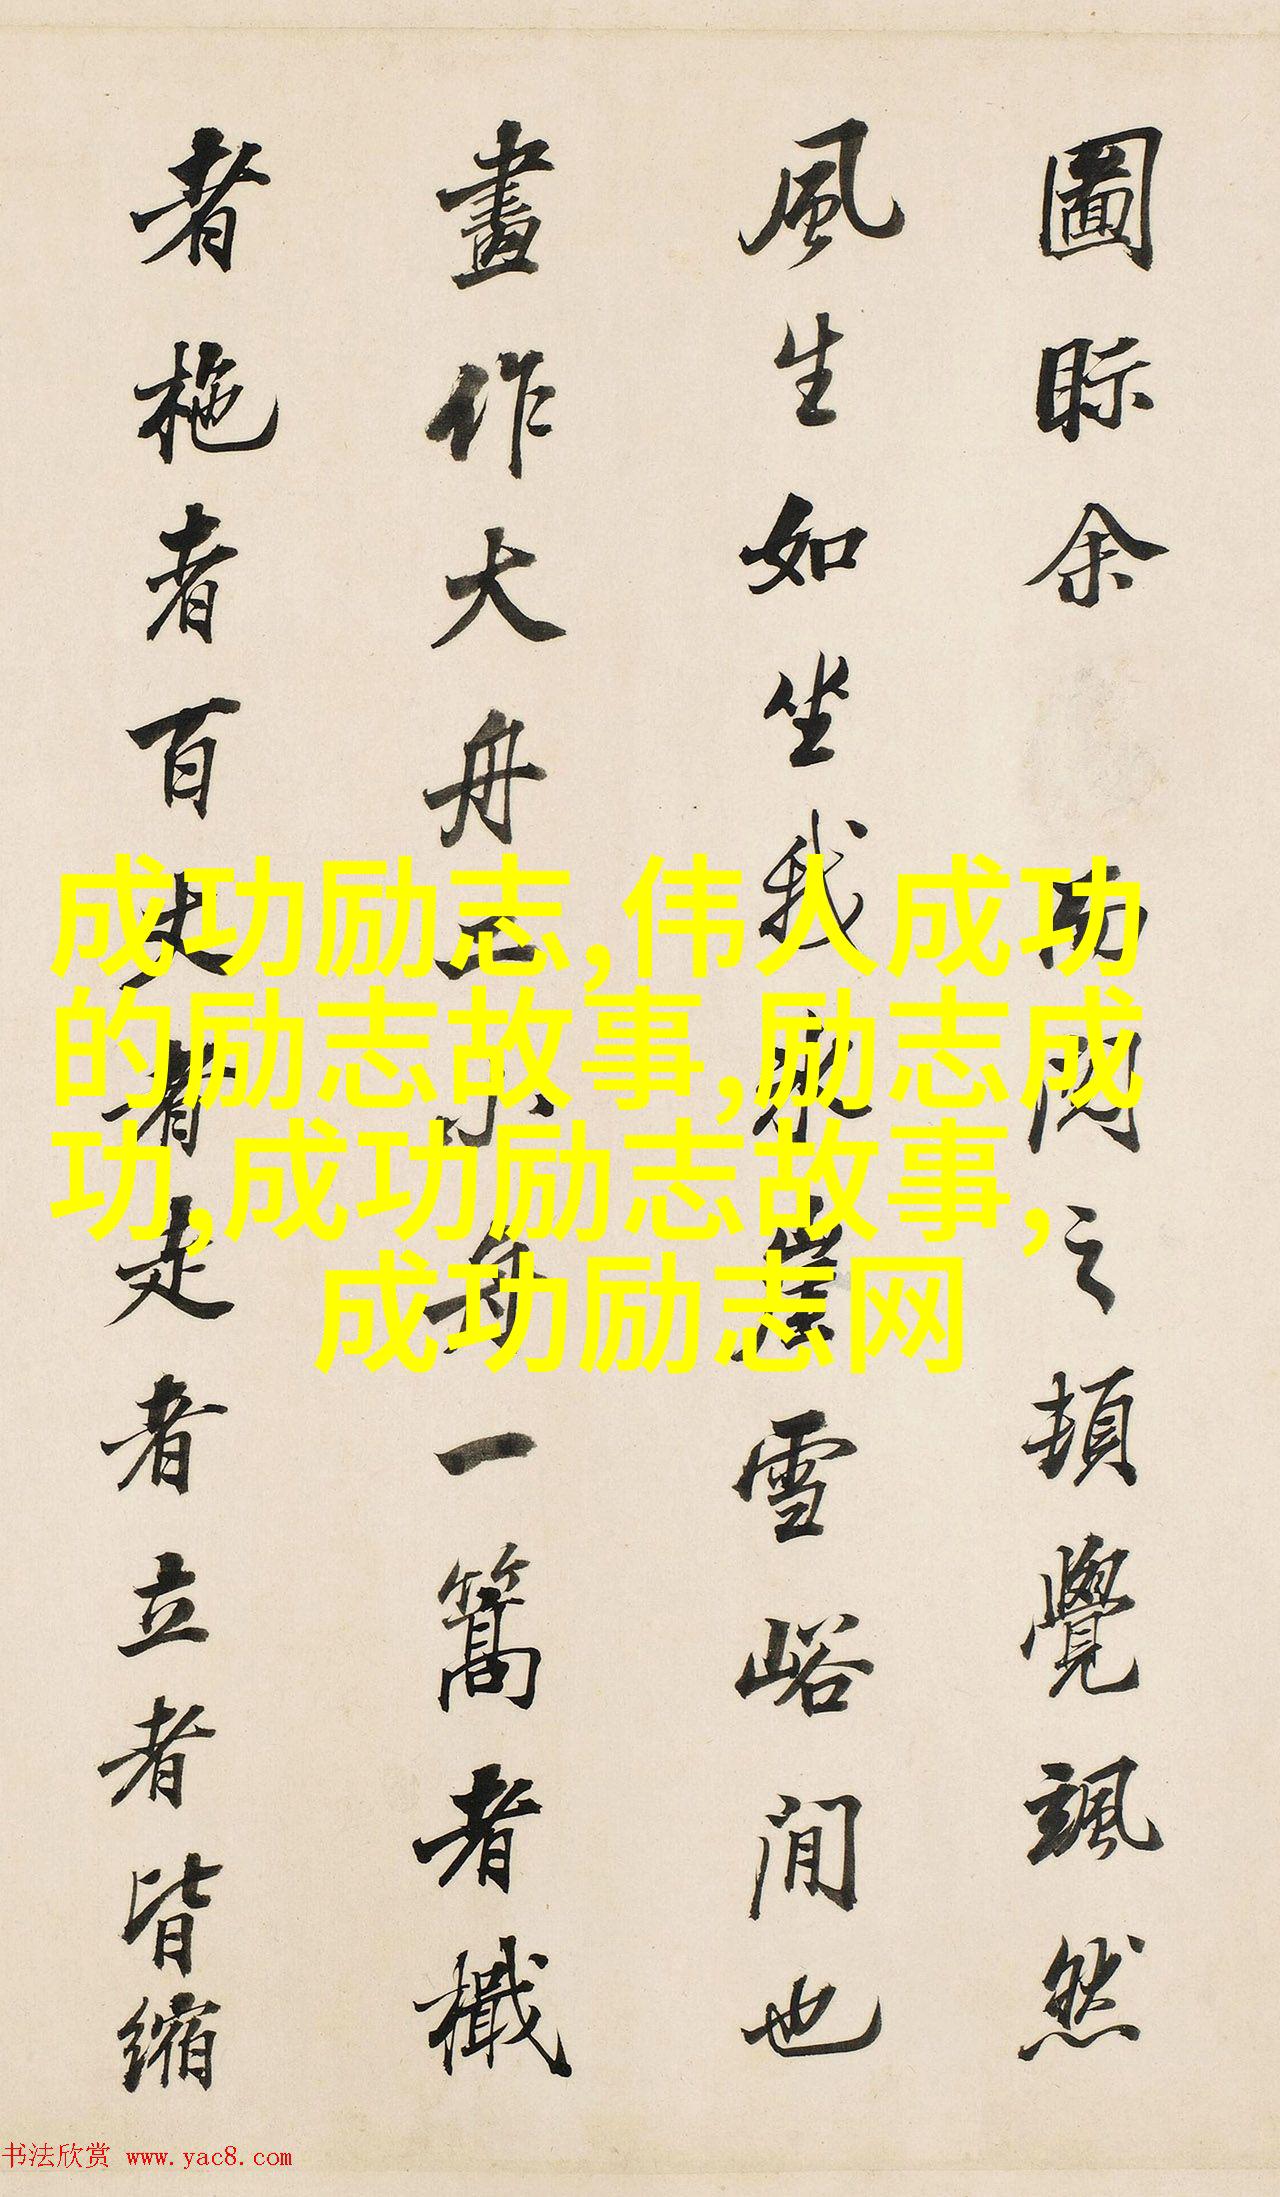 圖眎余閱之頓覺颯然
風生如坐我崖雪峪間也
畫作大舟小舟一篙者檝
者柂者百丈者走者立者皆縮
成功励志,伟人成功
的励志故事,励志成
功,成功励志故事,
成功励志网
书法欣赏 www.yac8.com